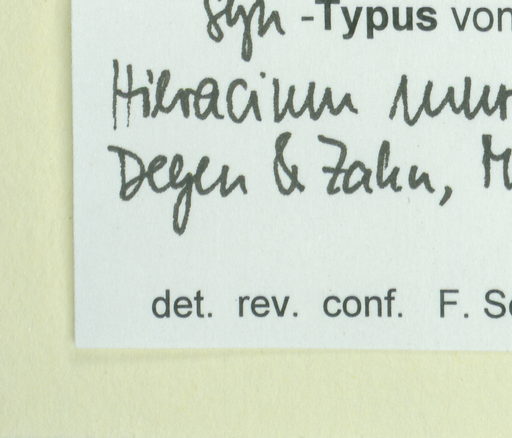 Syn -Typus von
Hieracium
Degen & Zahn, M
det. rev. conf. F. Sc